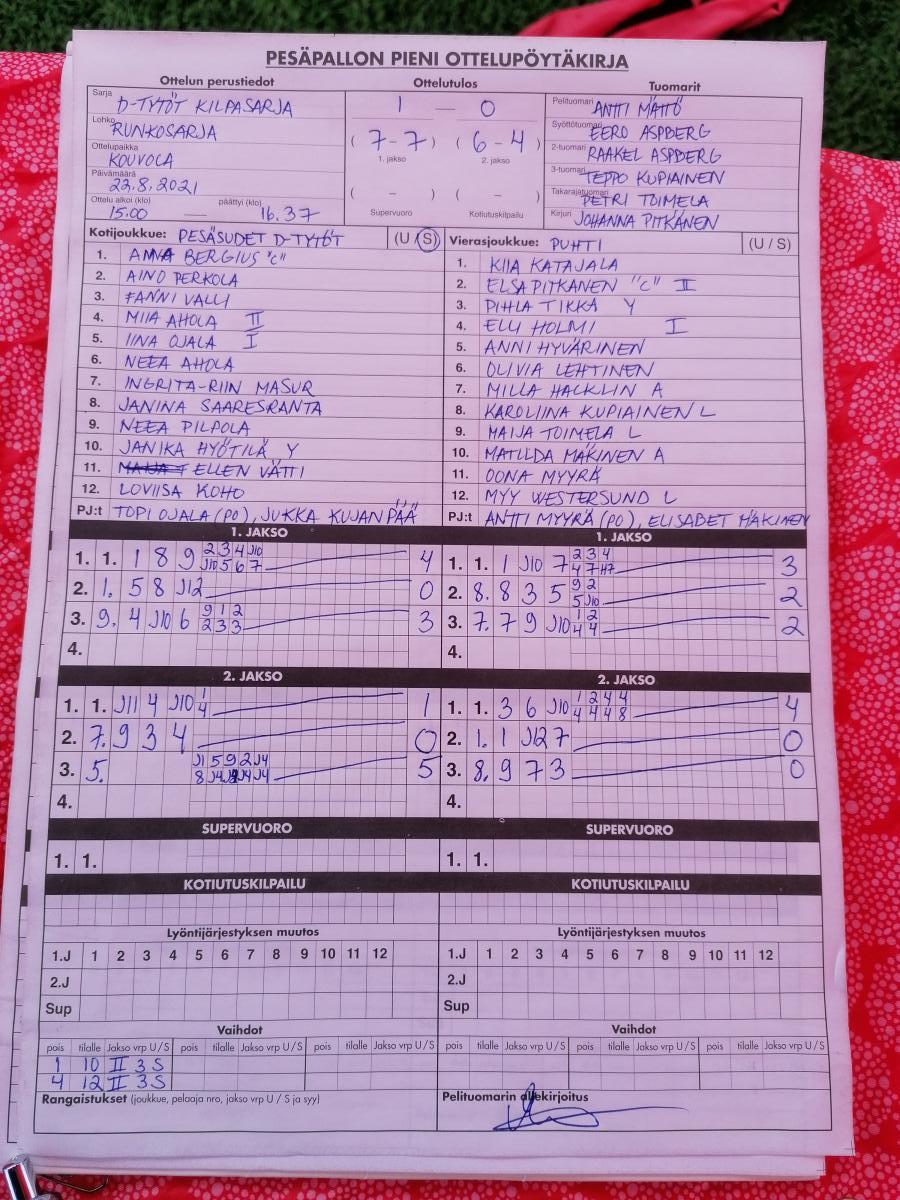 PESÄPALLON PIENI OTTELUPÖYTÄKIRJA
Ottelun perustiedot Ottelutulos Tuomarit
Sarja D-TYTÖT KILPASARJA
Lohko RUNKOSARJA
Ottelupaikka KOUVOLA
Päivämäärä 22.8.2021
Ottelu alkoi (klo) päättyi (klo)
15.00 — 16.37
1 — 0
(7-7) (6-4)
1. jakso 2. jakso
( - ) ( - )
Supervuoro Kotiutuskilpailu
Pelituomari ANTTI MÄTTÖ
Syöttötuomari EERO ASPBERG
2-tuomari RAAKEL ASPBERG
3-tuomari TEPPO KUPIAINEN
Takarajatuomari PETRI TOIMELA
Kirjuri JOHANNA PITKÄNEN
Kotijoukkue: PESÄSUDET D-TYTÖT (U/S)
1. ANNA BERGIUS "C"
2. AINO PERKOLA
3. FANNI VALLI
4. MIIA AHOLA II
5. IINA OJALA I
6. NEEA AHOLA
7. INGRITA-RIIN MASUR
8. JANINA SAARESRANTA
9. NEEA PILPOLA
10. JANIKA HYÖTILÄ Y
11. ELLEN VÄTTI
12. LOVIISA KOHO
PJ:t TOPI OJALA (PO), JUKKA KUJANPÄÄ
Vierasjoukkue: PUHTI (U/S)
1. KIIA KATAJALA
2. ELSA PITKÄNEN "C" II
3. PIHLA TIKKA Y
4. ELLI HOLMI I
5. ANNI HYVÄRINEN
6. OLIVIA LEHTINEN
7. MILLA HACKLIN A
8. KAROLIINA KUPIAINEN L
9. MAIJA TOIMELA L
10. MATILDA MÄKINEN A
11. OONA MYYRÄ
12. MYY WESTERSUND L
PJ:t ANTTI MYYRÄ (PO), ELISABET MÄKINEN
1. JAKSO
1. 1. 1 8 9 2 3 4 J10 4
J10 5 6 7
2. 1. 5 8 J12 0
3. 9. 4 J10 6 9 1 2 3
2 3 3
4.
1. JAKSO
1. 1. 1 J10 7 2 3 4 3
4 7 H7
2. 8. 8 3 5 9 2 2
5 J10
3. 7. 7 9 J10 1 2 2
4 4
4.
2. JAKSO
1. 1. J11 4 J10 1 1
4
2. 7. 9 3 4 0
3. 5. J1 5 9 2 J4 5
8 J4 J4 J4
4.
2. JAKSO
1. 1. 3 6 J10 1 2 4 4 4
4 4 4 8
2. 1. 1 J12 7 0
3. 8. 9 7 3 0
4.
SUPERVUORO SUPERVUORO
1. 1. 1. 1.
KOTIUTUSKILPAILU KOTIUTUSKILPAILU
Lyöntijärjestyksen muutos Lyöntijärjestyksen muutos
1.J 1 2 3 4 5 6 7 8 9 10 11 12 1.J 1 2 3 4 5 6 7 8 9 10 11 12
2.J 2.J
Sup Sup
Vaihdot Vaihdot
pois tilalle Jakso vrp U/S pois tilalle Jakso vrp U/S pois tilalle Jakso vrp U/S pois tilalle Jakso vrp U/S pois tilalle Jakso vrp U/S pois tilalle Jakso vrp U/S
1 10 II 3 S
4 12 II 3 S
Rangaistukset (joukkue, pelaaja nro, jakso vrp U / S ja syy) Pelituomarin allekirjoitus